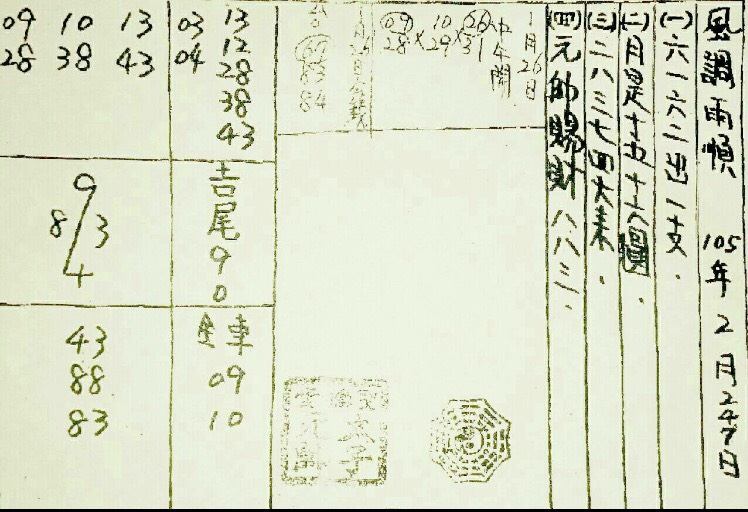 風調雨順 105年2月24日
(一)六一六二出一支.
(二)月是十五十六圓.
(三)二八三七四六來.
(四)元帥賜財八八三.
1月26日
中4開
09 × 10 × 26
28 29 31
83
84
13
03 12
04 28
38
43
09 10 13
28 38 43
吉尾90
9
8/3
4
金車
09
10
43
88
83